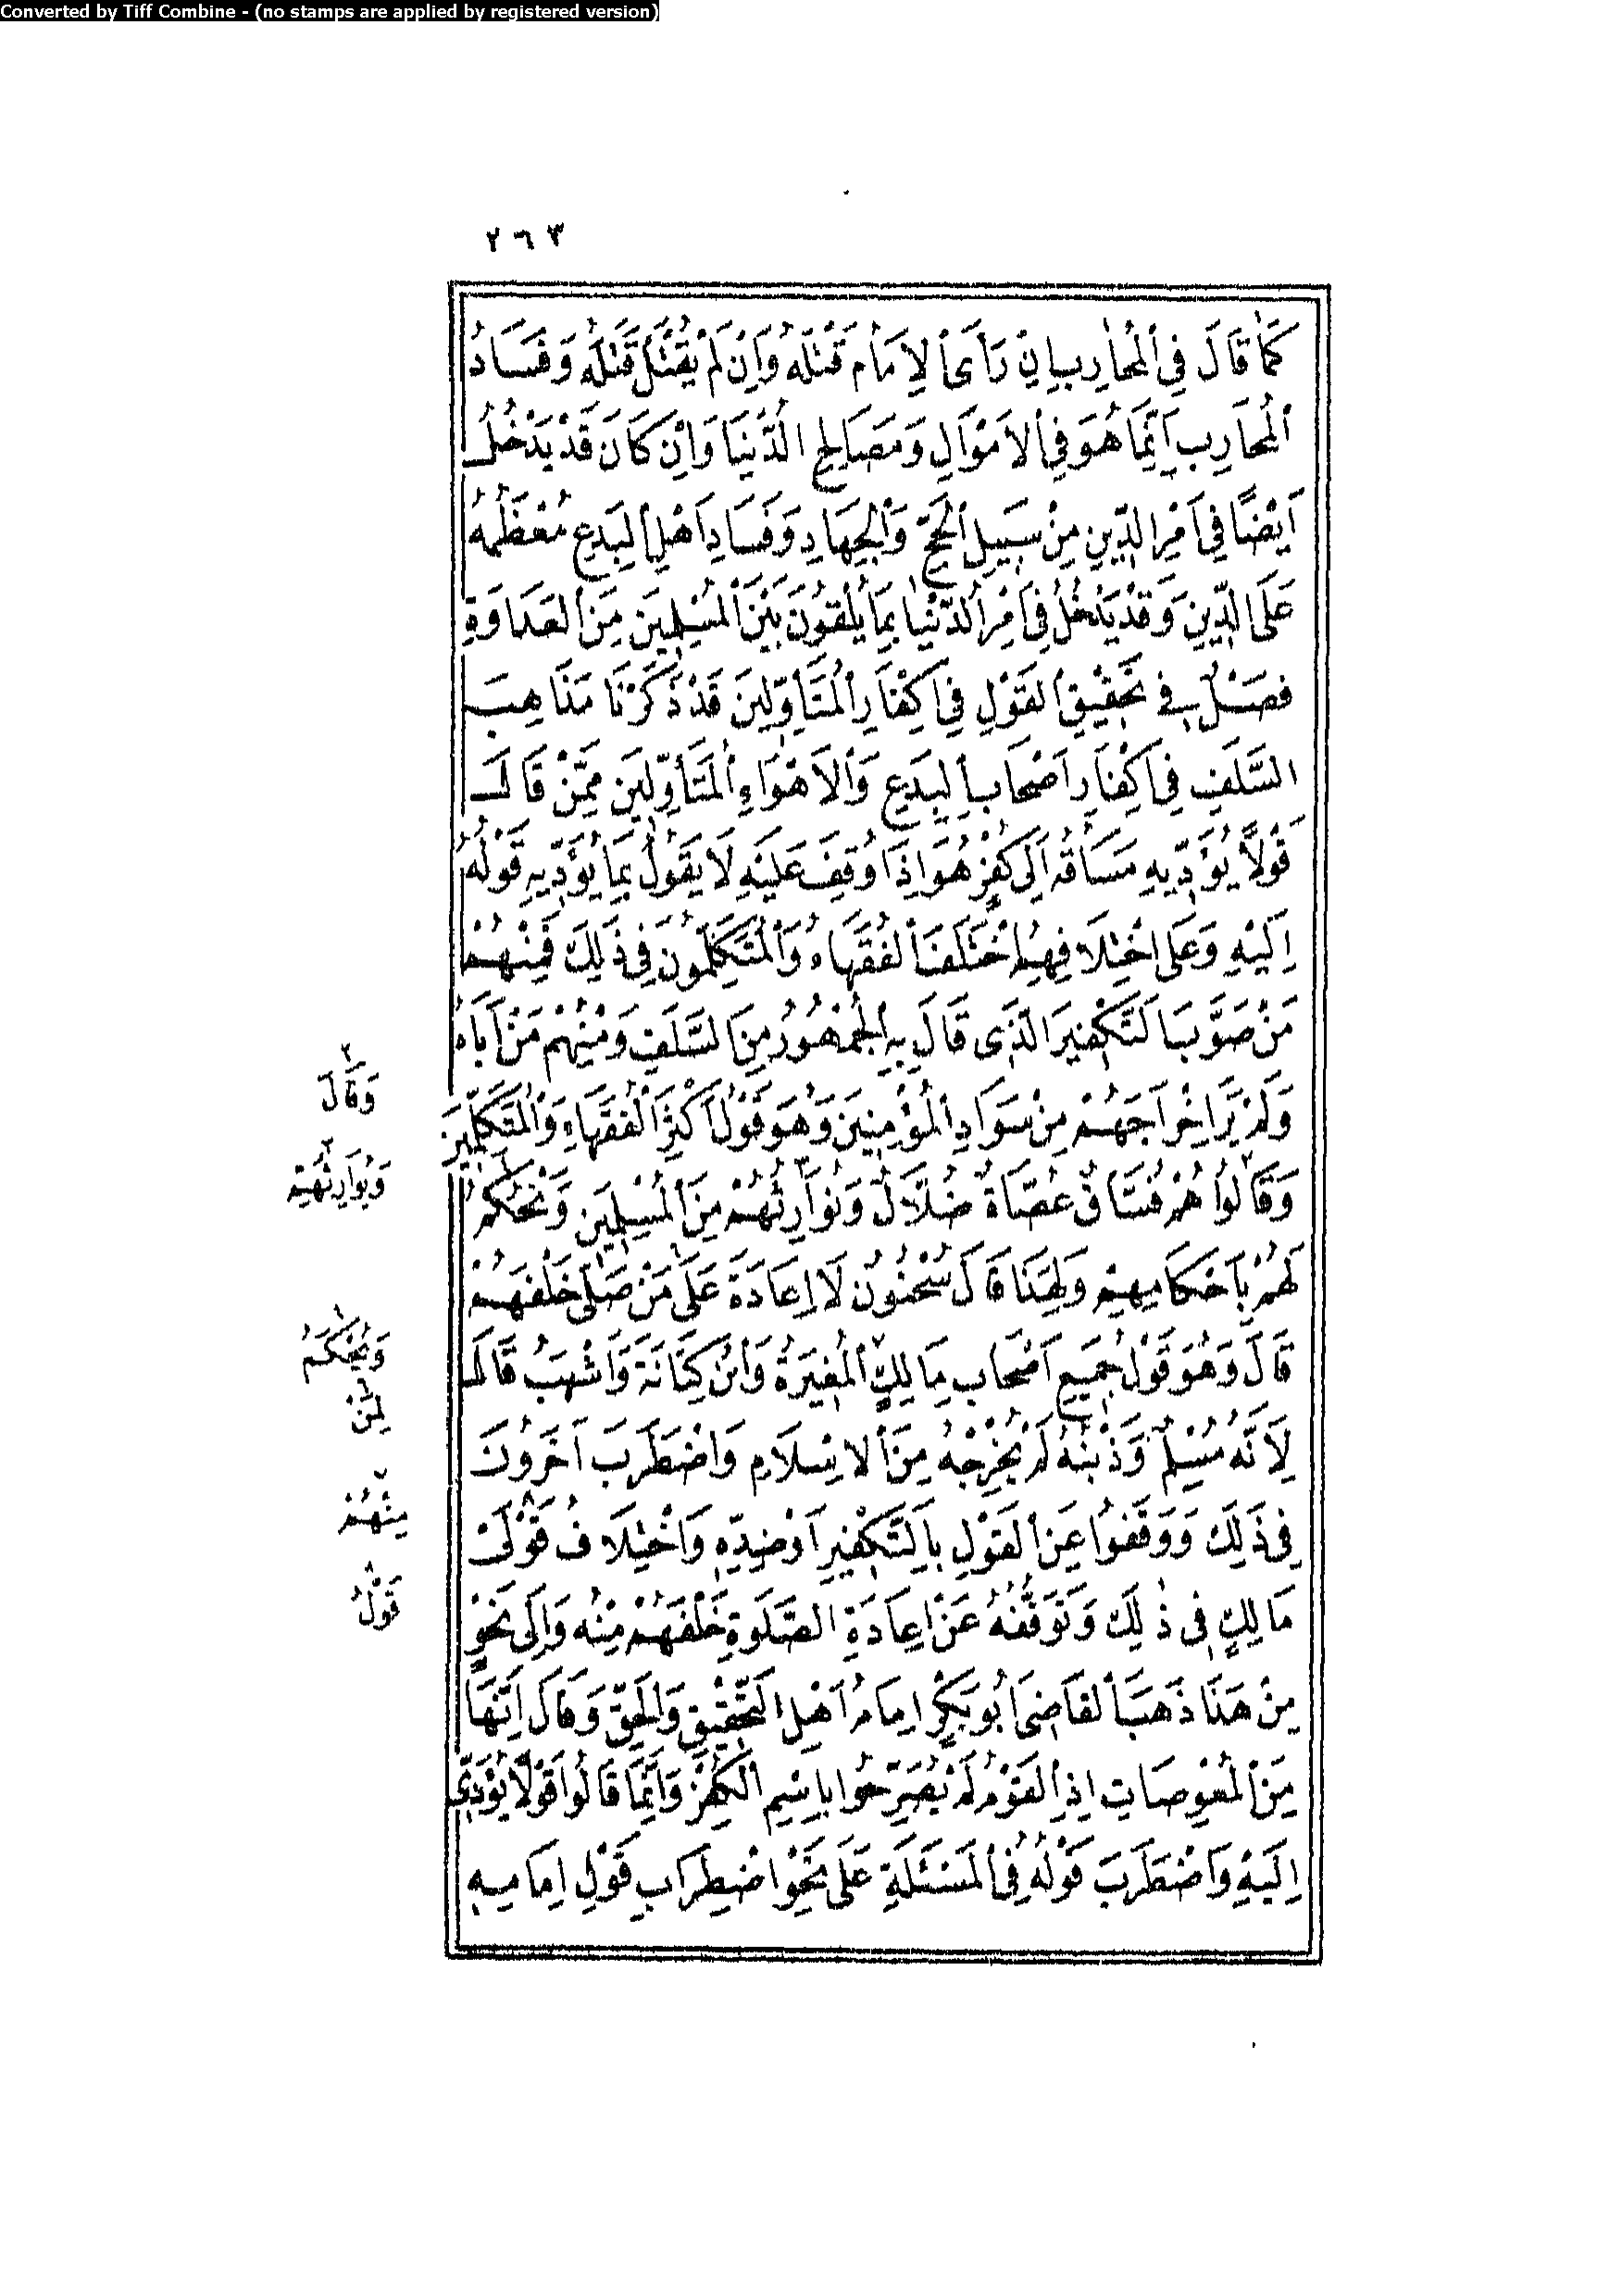 Converted by Tiff Combine - (no stamps are applied by registered version)
٢٦٣
كَمَا قَالَ فِي الْمُحَارِبِ إِنْ رَأَى الْإِمَامُ قَتْلَهُ وَإِنْ لَمْ يَقْتُلْ قَتَلَهُ وَفَسَادُ
الْمُحَارِبِ إِنَّمَا هُوَ فِي الْأَمْوَالِ وَمَصَالِحِ الدُّنْيَا وَإِنْ كَانَ قَدْ يَدْخُلُ
أَيْضًا فِي أَمْرِ الدِّينِ مِنْ سَبِيلِ الْحَجِّ وَالْجِهَادِ وَفَسَادِ أَهْلِ الْبِدَعِ مُعْظَمُهُ
عَلَى الدِّينِ وَقَدْ يَدْخُلُ فِي أَمْرِ الدُّنْيَا بِمَا يُلْقُونَ بَيْنَ الْمُسْلِمِينَ مِنَ الْعَدَاوَةِ
فَصْلٌ فِي تَحْقِيقِ الْقَوْلِ فِي إِكْفَارِ الْمُتَأَوِّلِينَ قَدْ ذَكَرْنَا مَذَاهِبَ
السَّلَفِ فِي إِكْفَارِ أَصْحَابِ الْبِدَعِ وَالْأَهْوَاءِ الْمُتَأَوِّلِينَ مِمَّنْ قَالَ
قَوْلًا يُؤَدِّيهِ مَسَاقُهُ إِلَى كُفْرٍ هُوَ إِذَا وُقِفَ عَلَيْهِ لَا يَقُولُ بِمَا يُؤَدِّيهِ قَوْلُهُ
إِلَيْهِ وَعَلَى اخْتِلَافِهِمُ اخْتَلَفَ الْفُقَهَاءُ وَالْمُتَكَلِّمُونَ فِي ذَلِكَ فَمِنْهُمْ
مَنْ صَوَّبَ التَّكْفِيرَ الَّذِي قَالَ بِهِ الْجُمْهُورُ مِنَ السَّلَفِ وَمِنْهُمْ مَنْ أَبَاهُ
وَلَمْ يَرَ إِخْرَاجَهُمْ مِنْ سَوَادِ الْمُؤْمِنِينَ وَهُوَ قَوْلُ أَكْثَرِ الْفُقَهَاءِ وَالْمُتَكَلِّمِينَ
وَقَالُوا هُمْ فُسَّاقٌ عُصَاةٌ ضُلَّالٌ وَنُوَارِثُهُمْ مِنَ الْمُسْلِمِينَ وَنَحْكُمُ
لَهُمْ بِأَحْكَامِهِمْ وَلِهَذَا قَالَ سُحْنُونٌ لَا إِعَادَةَ عَلَى مَنْ صَلَّى خَلْفَهُمْ
قَالَ وَهُوَ قَوْلُ جَمِيعِ أَصْحَابِ مَالِكٍ الْمُغِيرَةُ وَابْنُ كِنَانَةَ وَأَشْهَبُ قَالَ
لِأَنَّهُ مُسْلِمٌ وَذَنْبُهُ لَمْ يُخْرِجْهُ مِنَ الْإِسْلَامِ وَاضْطَرَبَ آخَرُونَ
فِي ذَلِكَ وَوَقَفُوا عَنِ الْقَوْلِ بِالتَّكْفِيرِ أَوْ ضِدِّهِ وَاخْتِلَافُ قَوْلَيْ
مَالِكٍ فِي ذَلِكَ وَتَوَقُّفُهُ عَنْ إِعَادَةِ الصَّلَوةِ خَلْفَهُمْ مِنْهُ وَإِلَى نَحْوٍ
مِنْ هَذَا ذَهَبَ الْقَاضِي أَبُو بَكْرٍ إِمَامُ أَهْلِ التَّحْقِيقِ وَالْحَقِّ وَقَالَ إِنَّهَا
مِنَ الْمُعْوِصَاتِ إِذِ الْقَوْمُ لَمْ يُصَرِّحُوا بِاسْمِ الْكُفْرِ وَإِنَّمَا قَالُوا قَوْلًا يُؤَدِّي
إِلَيْهِ وَاضْطَرَبَ قَوْلُهُ فِي الْمَسْئَلَةِ عَلَى نَحْوِ اضْطِرَابِ قَوْلِ إِمَامِهِ
٢
وَقَالَ
٣
وَيُوَارِثُهُمْ
وَيُحْكَمُ
٦
لِمَنْ
٧
مِنْهُمْ
٨
قَوْلُ